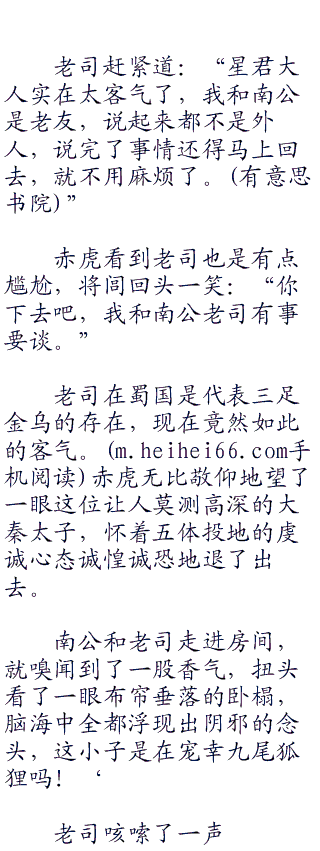 老司赶紧道：“星君大
人实在太客气了，我和南公
是老友，说起来都不是外
人，说完了事情还得马上回
去，就不用麻烦了。(有意思
书院)”
赤虎看到老司也是有点
尴尬，将闾回头一笑：“你
下去吧，我和南公老司有事
要谈。”
老司在蜀国是代表三足
金乌的存在，现在竟然如此
的客气。(m.heihei66.com手
机阅读)赤虎无比敬仰地望了
一眼这位让人莫测高深的大
秦太子，怀着五体投地的虔
诚心态诚惶诚恐地退了出
去。
南公和老司走进房间，
就嗅闻到了一股香气，扭头
看了一眼布帘垂落的卧榻，
脑海中全都浮现出阴邪的念
头，这小子是在宠幸九尾狐
狸吗！‘
老司咳嗽了一声